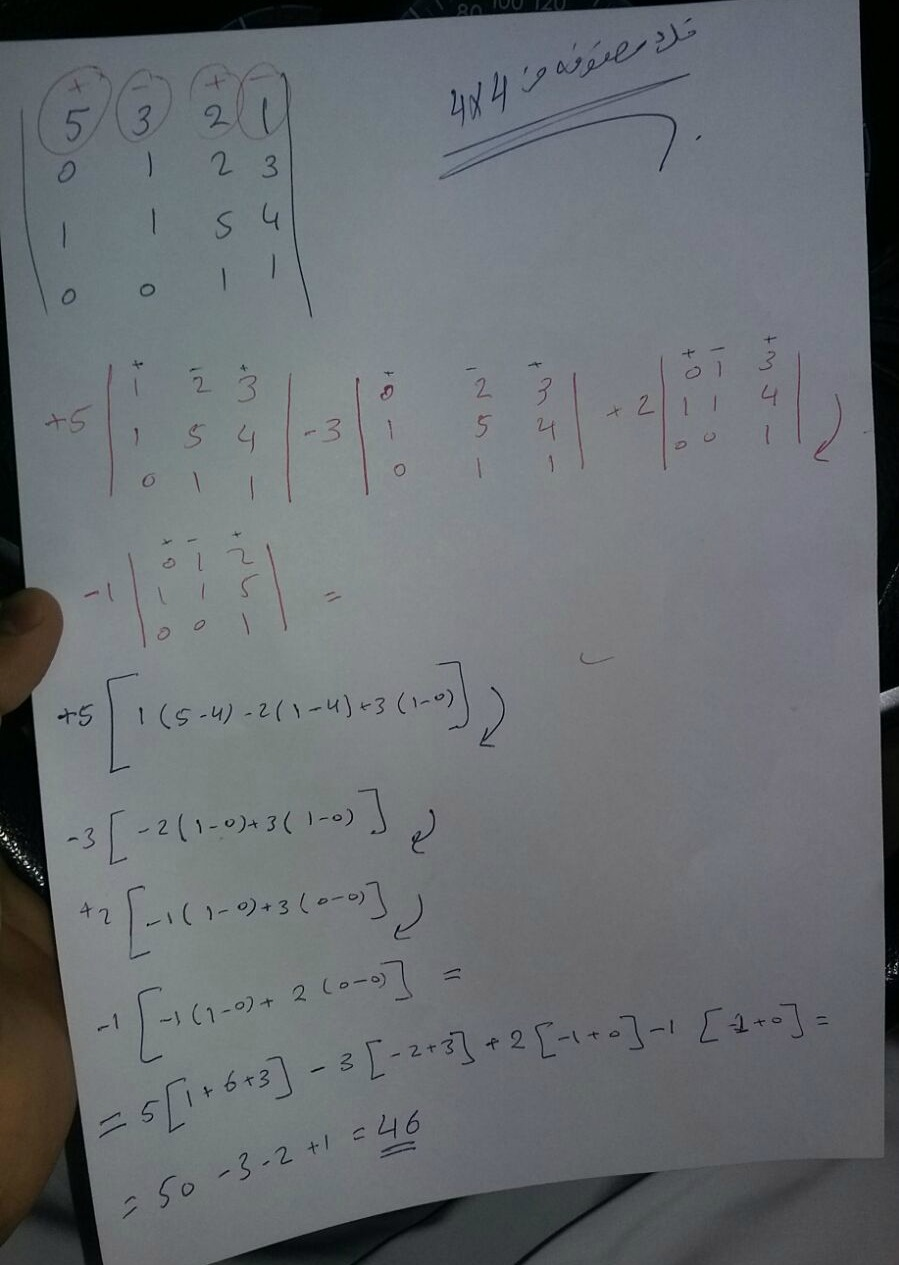 80 100 120
4x4
+ - + -
5 3 2 1
0 1 2 3
1 1 5 4
0 0 1 1
+ - + + - + + - +
+5 | 1 2 3 | -3 | 0 2 3 | +2 | 0 1 3 |
| 1 5 4 | | 1 5 4 | | 1 1 4 |
| 0 1 1 | | 0 1 1 | | 0 0 1 |
+ - +
-1 | 0 1 2 | =
| 1 1 5 |
| 0 0 1 |
+5 [ 1 (5-4) -2 (1-4) +3 (1-0) ]
-3 [ -2 (1-0) +3 (1-0) ]
+2 [ -1 (1-0) +3 (0-0) ]
-1 [ -1 (1-0) + 2 (0-0) ] =
= 5 [1+6+3] - 3 [-2+3] + 2 [-1+0] -1 [-1+0] =
= 50 -3 -2 +1 = 46